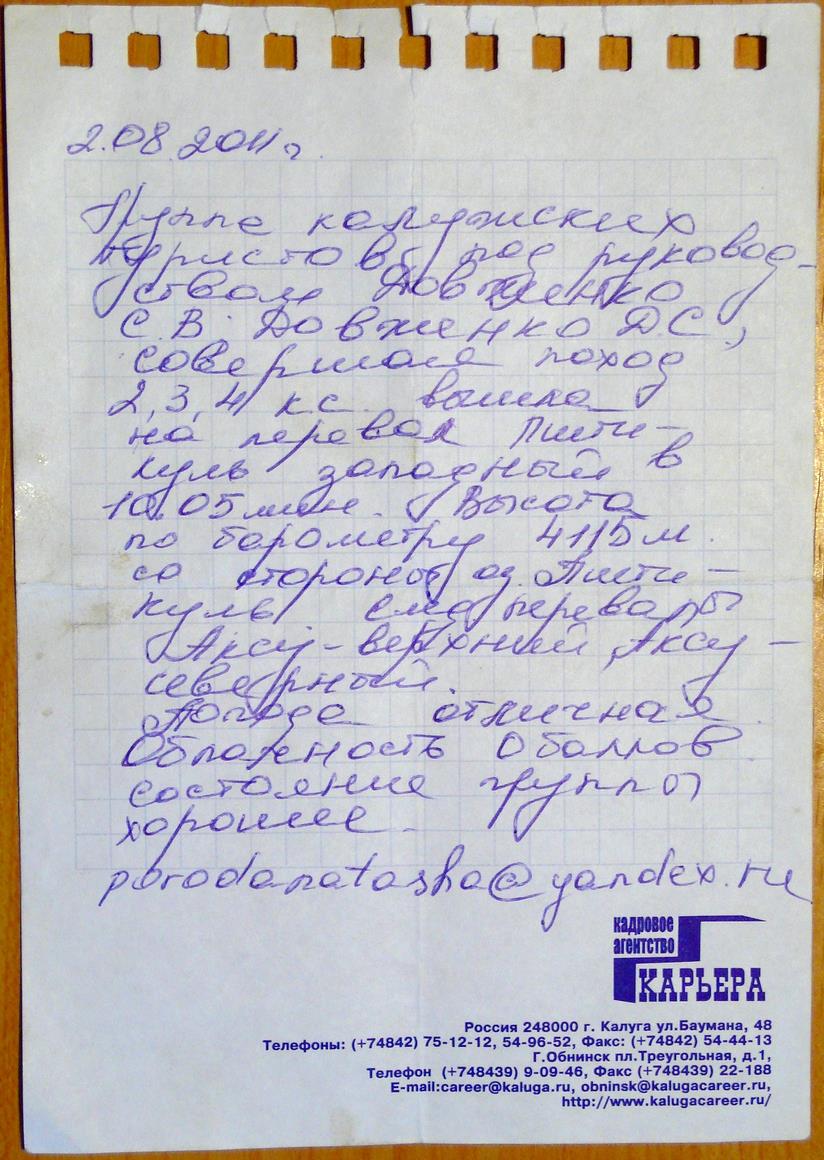 2.08.2011г.
Группа калужских
туристов под руковод-
ством Довженко
С.В. Довженко Д.С.,
совершая поход
2,3,4 кс вышла
на перевал Пшти-
куль западный в
10.05 мин. Высота
по барометру 4115 м.
со стороны оз. Пшти-
куль след перевалы
Аксу-верхний, Аксу-
северный.
Погода отличная.
Облачность 0 баллов.
состояние группы
хорошее.
porodanatasha@yandex.ru
кадровое
агентство
КАРЬЕРА
Россия 248000 г. Калуга ул.Баумана, 48
Телефоны: (+74842) 75-12-12, 54-96-52, Факс: (+74842) 54-44-13
Г.Обнинск пл.Треугольная, д.1,
Телефон (+748439) 9-09-46, Факс (+748439) 22-188
E-mail:career@kaluga.ru, obninsk@kalugacareer.ru,
http://www.kalugacareer.ru/